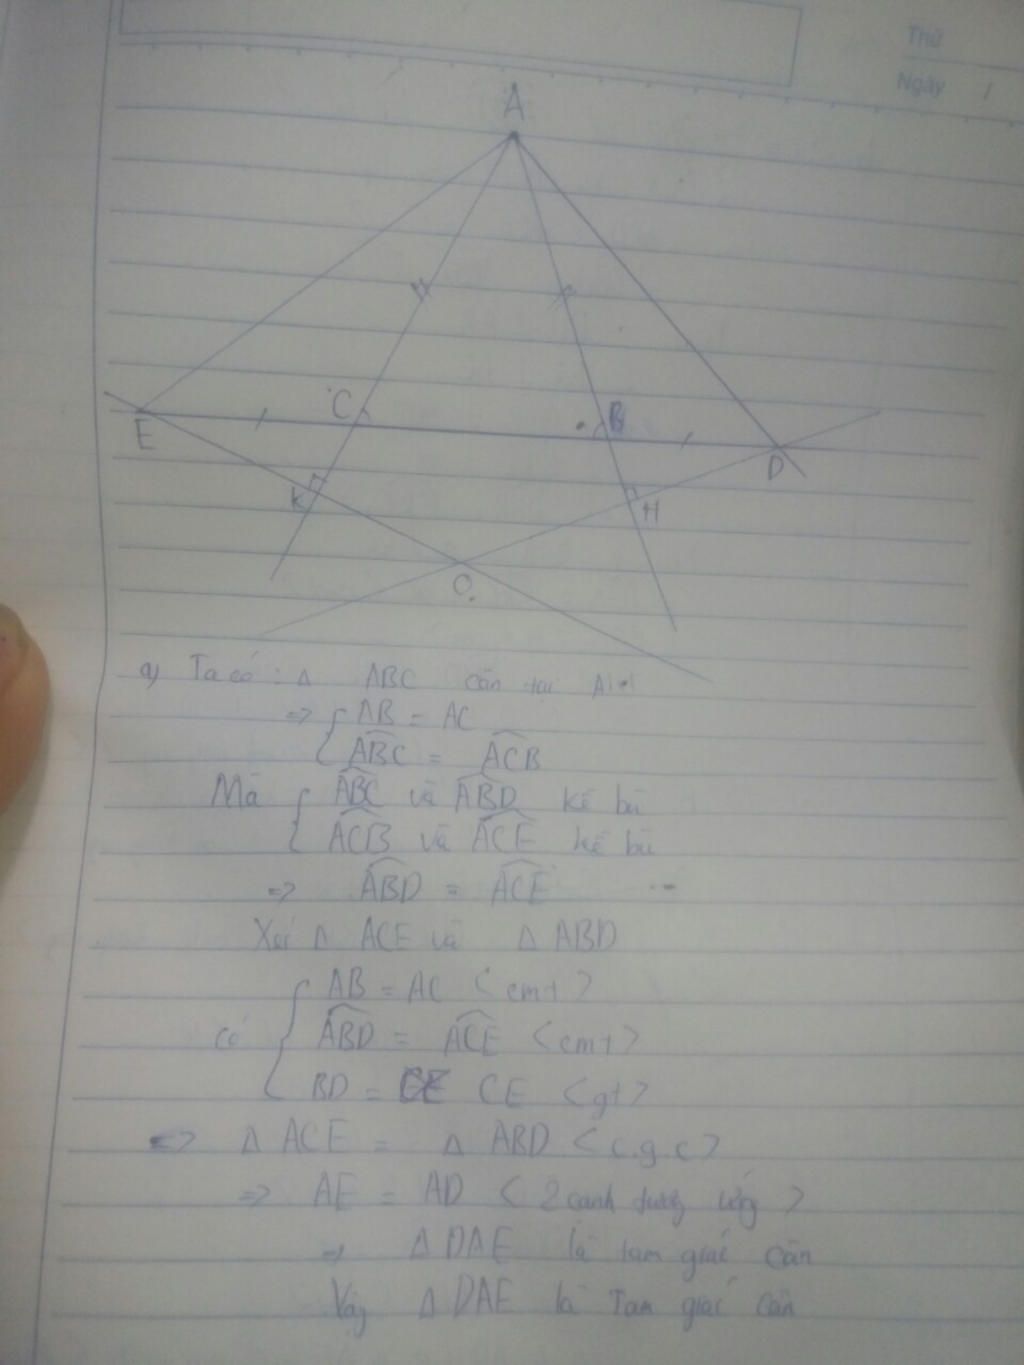 Thứ
Ngày /
A
C
B
E
D
K
H
O
a) Ta có : Δ ABC cân tại A
=> { AB = AC
ABC = ACB
Mà { ABC và ABD kề bù
ACB và ACE kề bù
=> ABD = ACE
Xét Δ ACE và Δ ABD
có { AB = AC <cmt>
ABD = ACE <cmt>
BD = CE <gt>
=> Δ ACE = Δ ABD <c.g.c>
=> AE = AD < 2 cạnh tương ứng >
=> Δ DAE là tam giác cân
Vậy Δ DAE là Tam giác cân